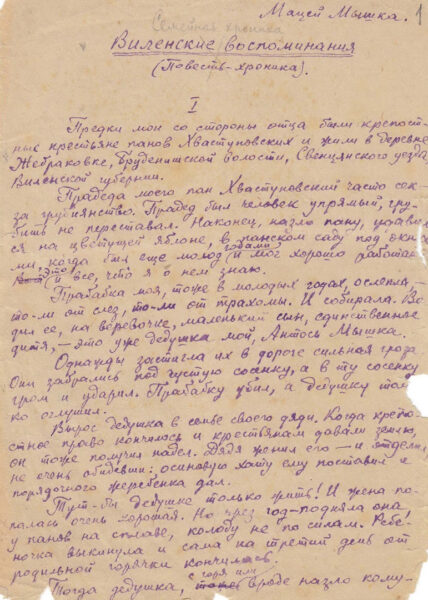 Мацей Мышка. 1
Семейная хроника
Виленские воспоминания
(Повесть-хроника).
I
Предки мои со стороны отца были крепост-
ные крестьяне панов Хвастуновских и жили в деревне
Жебраковке, Бруденишской волости, Свенцянского уезда
Виленской губернии.
Прадеда моего пан Хвастуновский часто сек
за грубиянство. Прадед был человек упрямый, гру-
бить не переставал. Наконец, назло пану, удавил-
ся на цветущей яблоне, в панском саду под окна-
ми, когда был еще молод годами и мог хорошо работать.
Это и все, что я о нем знаю.
Прабабка моя, тоже в молодых годах, ослепла,-
то-ли от слез, то-ли от трахомы. И собирала. Во-
дил ее, на веревочке, маленький сын, единственное
дитя, — это уже дедушка мой, Антось Мышка.
Однажды застигла их в дороге сильная гроза.
Они забрались под густую сосенку, а в ту сосенку
гром и ударил. Прабабку убил, а дедушку толь-
ко оглушил.
Вырос дедушка в семье своего дяди. Когда крепо-
стное право кончилось и крестьянам давали землю,
он тоже получил надел. Дядя женил его — и отделил
не очень обидевши: осиновую хату ему поставил и
порядочного жеребенка дал.
Тут-бы дедушке только жить! И жена по-
палась очень хорошая. Но чрез год — подняла она,
у панов на сплаве, колоду не по силам. Ребе-
ночка выкинула и сама на третий день от
родильной горячки кончилась.
Тогда дедушка, с горя или вроде назло кому-